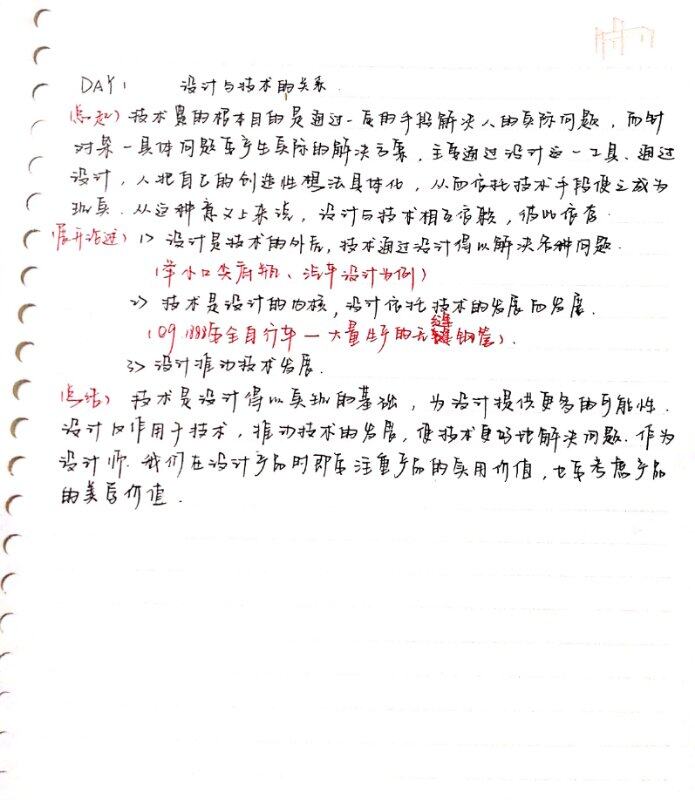 DAY1 设计与技术的关系.
(总起) 技术最的根本目的是通过一定的手段解决人的实际问题，而针
对某一具体问题要产生实际的解决方案，主要通过设计这一工具、通过
设计，人把自己的创造性想法具体化，从而依托技术手段使之成为
现实. 从这种意义上来说，设计与技术相互依赖，彼此依存
(展开论述) 1> 设计是技术的外层，技术通过设计得以解决各种问题.
(举小口类肩瓶、汽车设计为例)
2> 技术是设计的内核，设计依托技术的发展而发展.
(09 1888 全自行车 — 大量生产的无缝钢管).
3> 设计推动技术发展.
(总结) 技术是设计得以实现的基础，为设计提供更多的可能性.
设计反作用于技术，推动技术的发展，使技术更好地解决问题. 作为
设计师. 我们在设计产品时即要注重产品的实用价值，也要考虑产品
的美学价值.